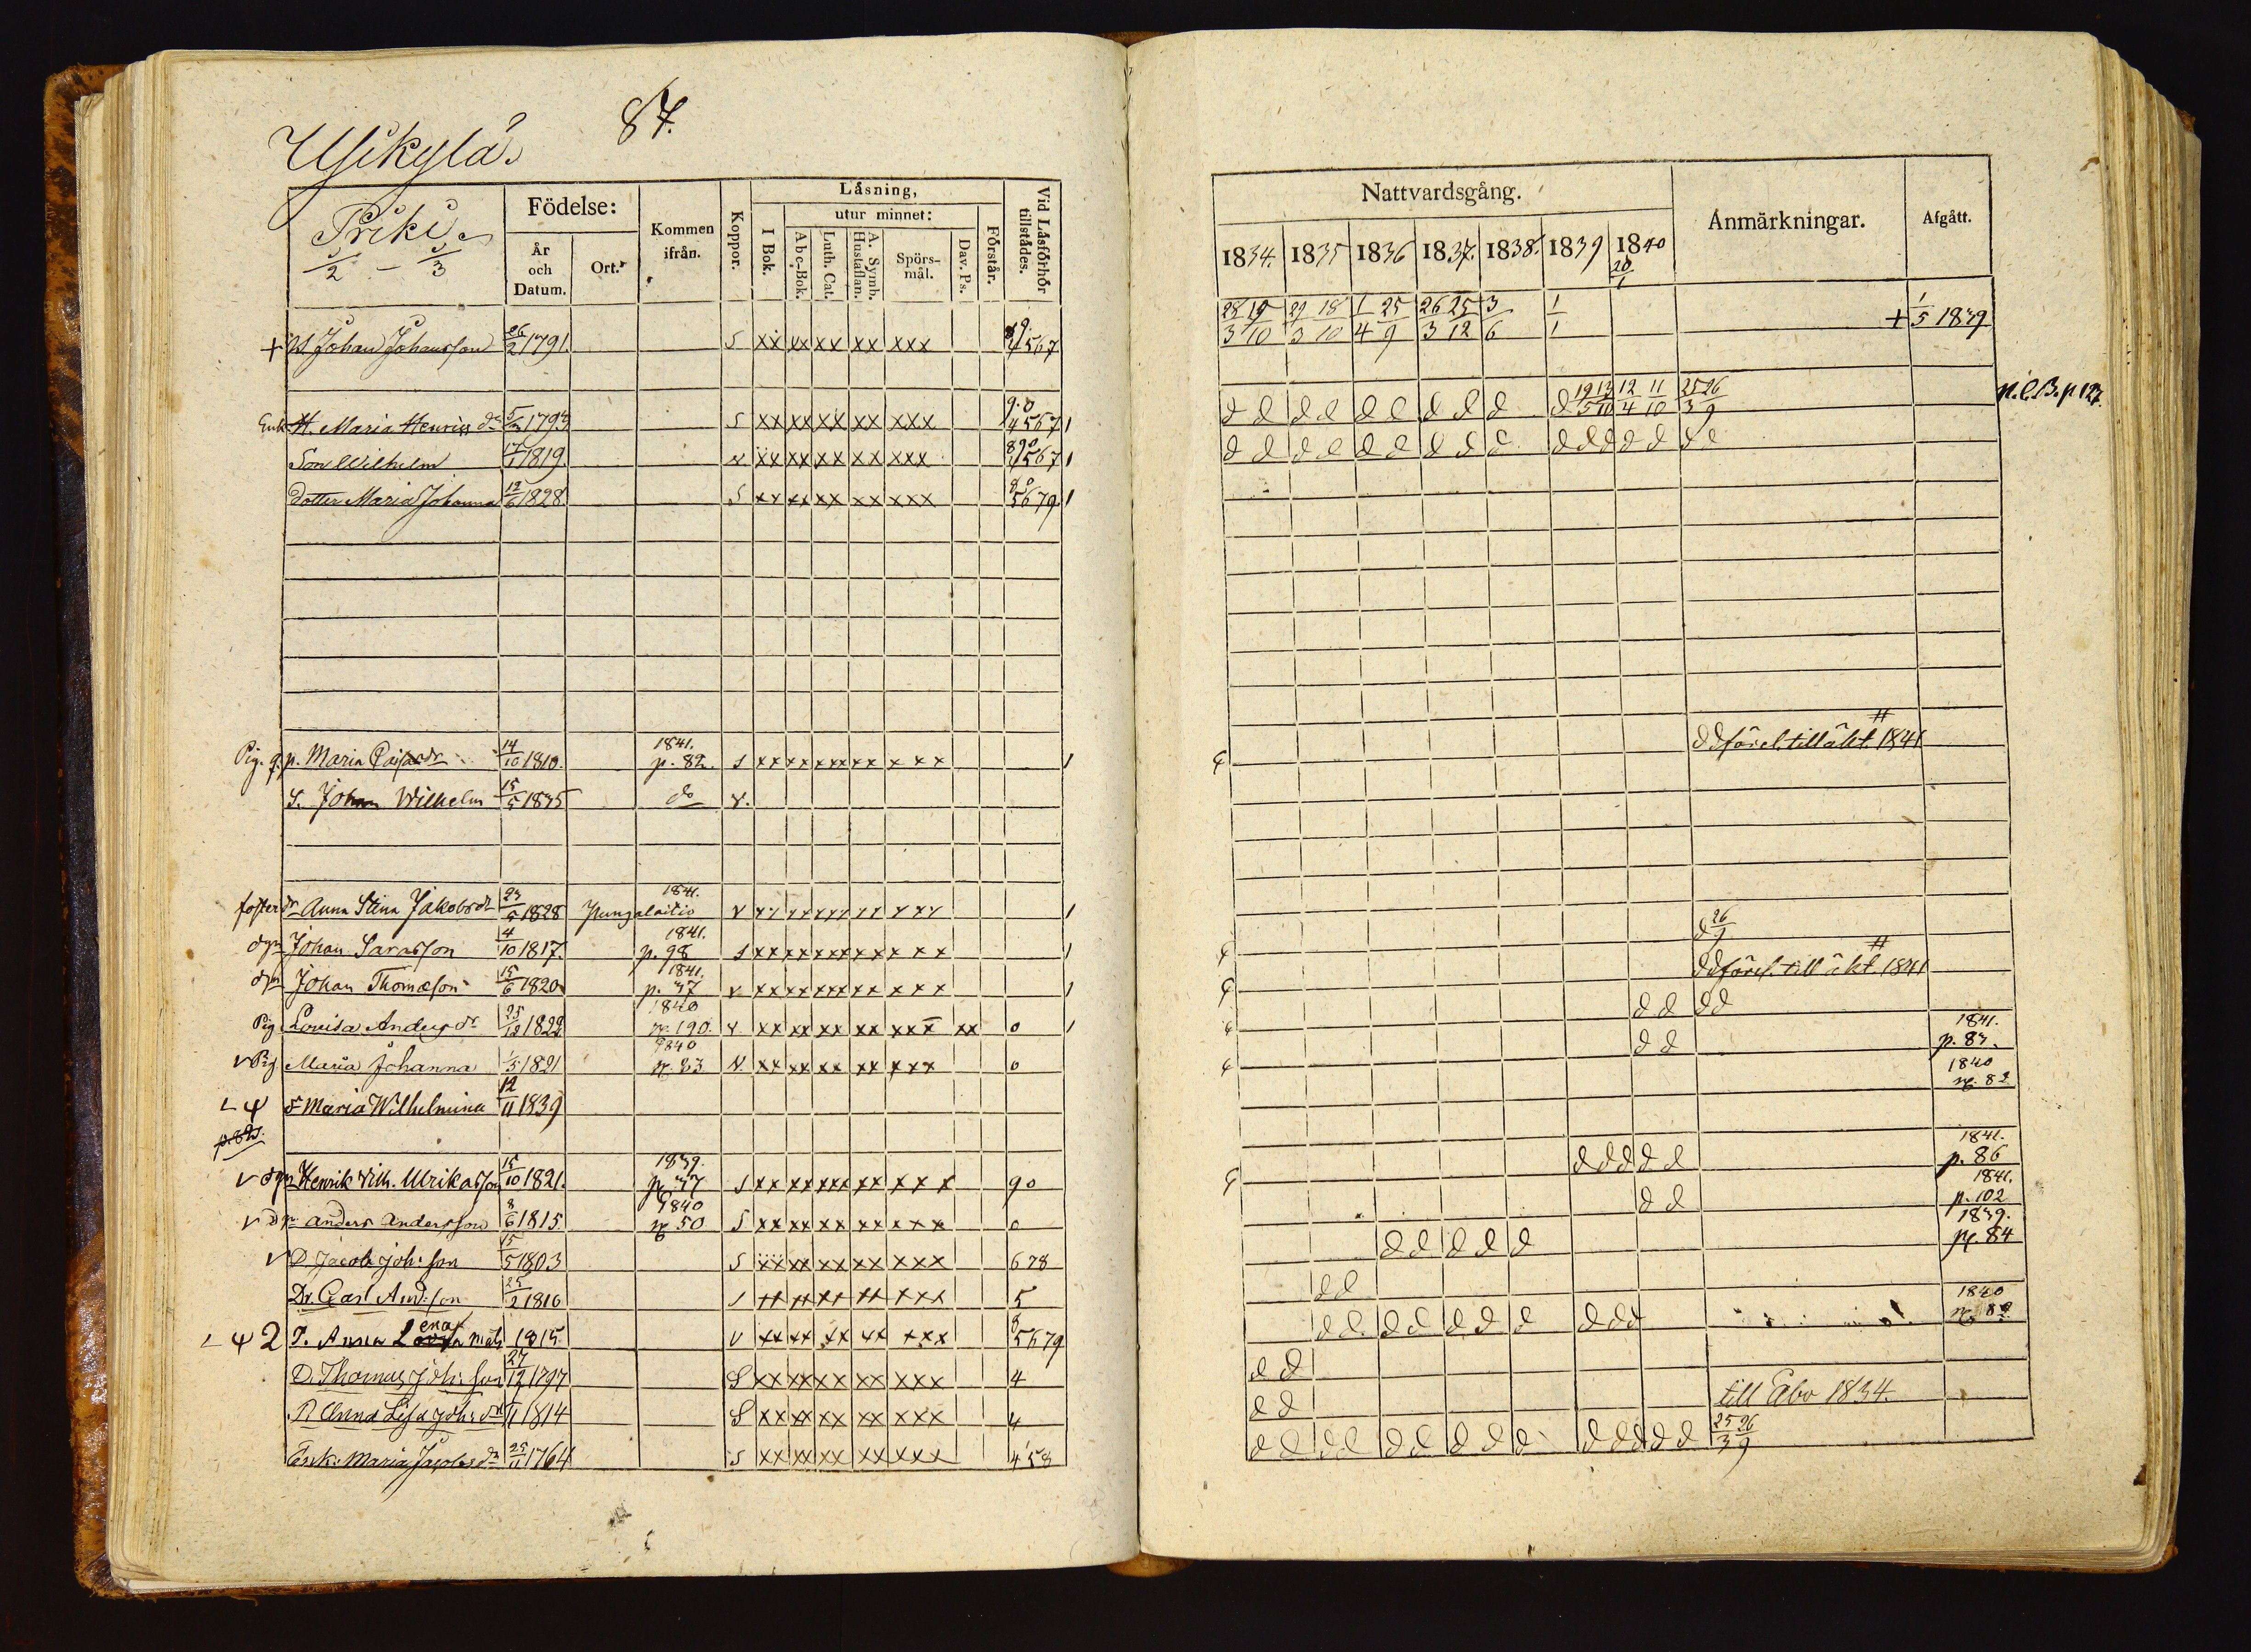 87.
Usikylä.
Prikis
1/2 - 1/3
Födelse:
År och Datum.
Ort.
Kommen ifrån.
Koppor.
Läsning,
I Bok.
utur minnet:
Abc-Bok.
Luth. Cat.
A. Symb. Hustaflan.
Spörs-mål.
Dav. Ps.
Förstår.
Vid Läsförhör tillstädes.
+ Johan Johansson 26/2 1791 S xx xx xx xx xxx 567
Enk H. Maria Henrics dr 1793 S xx xx xx xx xxx 4567 1
Son Wilhelm 1819 v xx xx xx xx xxx 567 1
Dotter Maria Johanna 12/6 1828 S xx xx xx xx xxx 5679 1
Pig. p. Maria dr 14/10 1810. 1841. p. 82. s xx xx xxx xx x x x 1
S. Johan Wilhelm 15/5 1835 do v.
foster dr Anna Stina Jakobs dr 23/5 1828 1841. v 1
dgn Johan Sarasson 4/10 1817. 1841. p. 98 s xx xx xxx xx x x x 1
dgn Johan Thomasson 15/6 1820 1841. p. 37 v xx xx xxx xx x x x 1
Pig Lovisa Anders dr 25/12 1822 1840 p. 190. v. xx xx xx xx xxx xx 0 1
v Pig Maria Johanna 1821 1840 p. 83 v. xx xx xx xx xxx 0
d Maria Wilhelmina 12/11 1839
v dgn Henrik Wilh. Ulrikasson 15/10 1821. 1839. p. 37 s xx xx xxx xx x x x 90
v Anders Andersson 8/6 1815 1840 p. 50 S xx xx xx xx xxx 0
v D. Jacob Joh: son 15/5 1803 S xx xx xx xx xxx 678
Dr. Carl And: son 25/2 1816 s xx xx xx xx xxx 5
2 P. Anna Lena Mats 1815 v xx xx xx xx xxx 5679
D. Thomas Joh: son 27/12 1797 S xx xx xx xx xxx 4
P Anna Lisa Joh: dr 1814 S xx xx xx xx xxx 4
Enk: Maria Jacobs dr 25/11 1764 S xx xx xx xx xxx 458
Nattvardsgång.
Anmärkningar.
Afgått.
1834. 1835 1836 1837. 1838. 1839 1840
20/1
28/3 19/10 29/3 18/10 1/4 25/9 26/3 25/12 3/6 1/1 + 1/5 1839
d d d d d d d d d d 19/5 13/10 12/4 11/10 25/3 26/9 p. 127.
d d d d d d d d d d d d d d d d
d d förel. till äkt. 1841
d 26/9
d d förel. till äkt. 1841
d d d d
d d 1841. p. 83.
1840
d d d d d 1841. p. 86
d d 1841. p. 102
d d d d d 1839. p. 84
d d
d d d d d d d d d d 1840
d d
d d till Åbo 1834.
d d d d d d d d d d d d d d 25/3 26/9